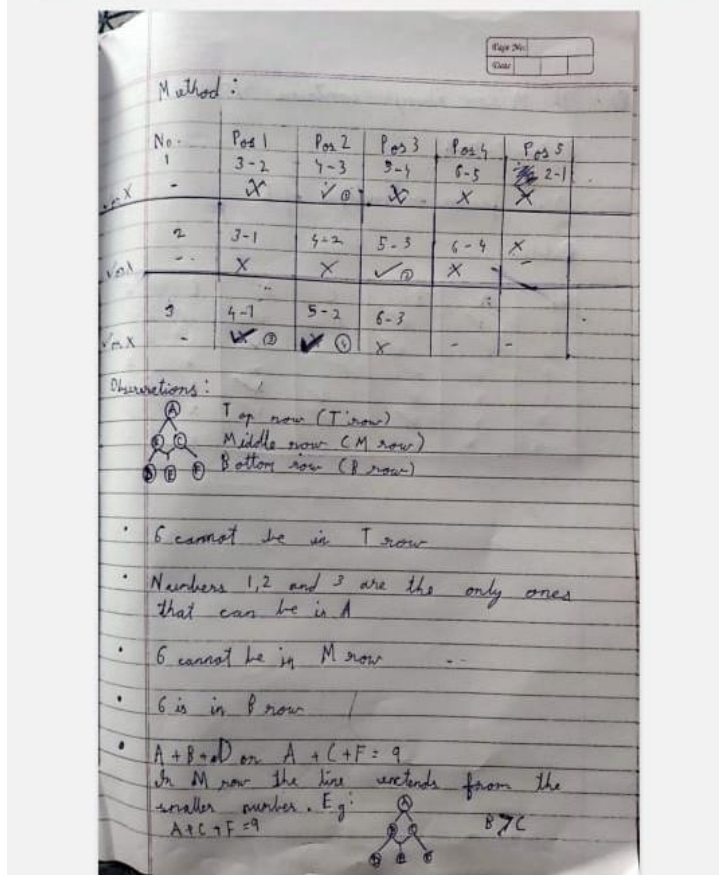 Page No.
Date
Method :
No. Pos 1 Pos 2 Pos 3 Pos 4 Pos 5
1 3-2 4-3 5-4 6-5 2-1
- X ✓ ① X X X
2 3-1 4-2 5-3 6-4 X
- X X ✓ ② X -
3 4-1 5-2 6-3
- ✓ ③ ✓ ④ X - -
Observations :
A
T op row (T row)
B C
Middle row (M row)
D E F
Bottom row (B row)
• 6 cannot be in T row
• Numbers 1,2 and 3 are the only ones
that can be is A
• 6 cannot be in M row
• 6 is in B row
• A+B+D or A+C+F = 9
In M row the line extends from the
smaller number. Eg:
A
A+C+F=9
B C
B>C
D E F